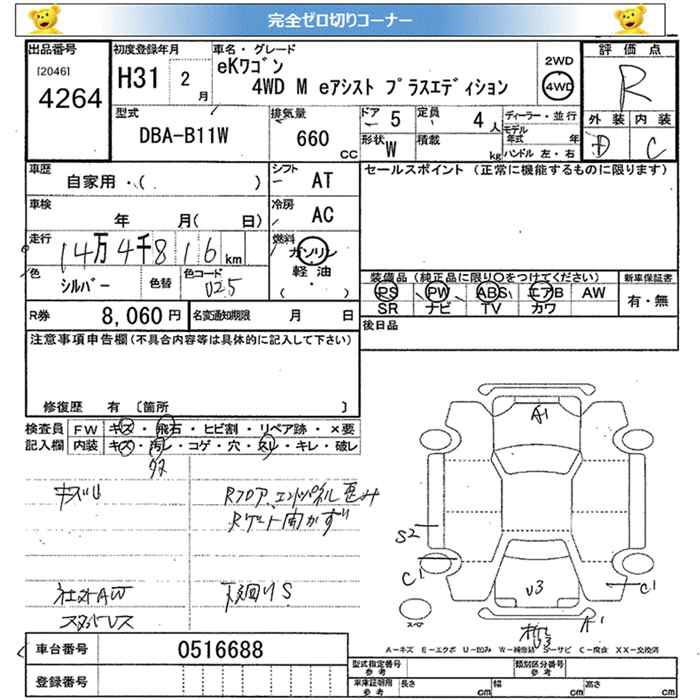 完全ゼロ切りコーナー
出品番号
[2046]
4264
初度登録年月
H31 2 月
車名・グレード
eKワゴン
4WD M eアシスト プラスエディション
2WD
4WD
評価点
R
外装 内装
D C
型式
DBA-B11W
排気量
660 CC
ドア 5
定員 4 人
形状 W
積載 kg
ディーラー・並行
モデル年式 年
ハンドル 左・右
車歴
自家用・( )
シフト AT
車検 年 月( 日)
冷房 AC
走行 14万4千816 km
燃料 ガソリン
軽油
( ・ )
色 シルバー
色替
色コード U25
R券 8,060 円
名変通知期限 月 日
セールスポイント (正常に機能するものに限ります)
装備品 (純正品に限り○をつけてください)
新車保証書
PS PW ABS エアB AW
有・無
SR ナビ TV カワ
後日品
注意事項申告欄(不具合内容等は具体的に記入して下さい)
修復歴 有 〔箇所 〕
検査員記入欄
FW キズ・飛石・ヒビ割・リペア跡・×要
内装 キズ・汚レ・コゲ・穴・スレ・キレ・破レ
Rフロア、エンドパネル歪み
Rゲート開かず
社外AW
スタットレス
下廻りS
A1
S2
C1
C1
U3
A1
U3
スペ
A-キズ E-エクボ U-凹み W-補修跡 S-サビ C-腐食 XX-交換済
車台番号 0516688
登録番号
型式指定番号 参考
類別区分番号 参考
車庫証明用 参考
長さ cm 幅 cm 高さ cm